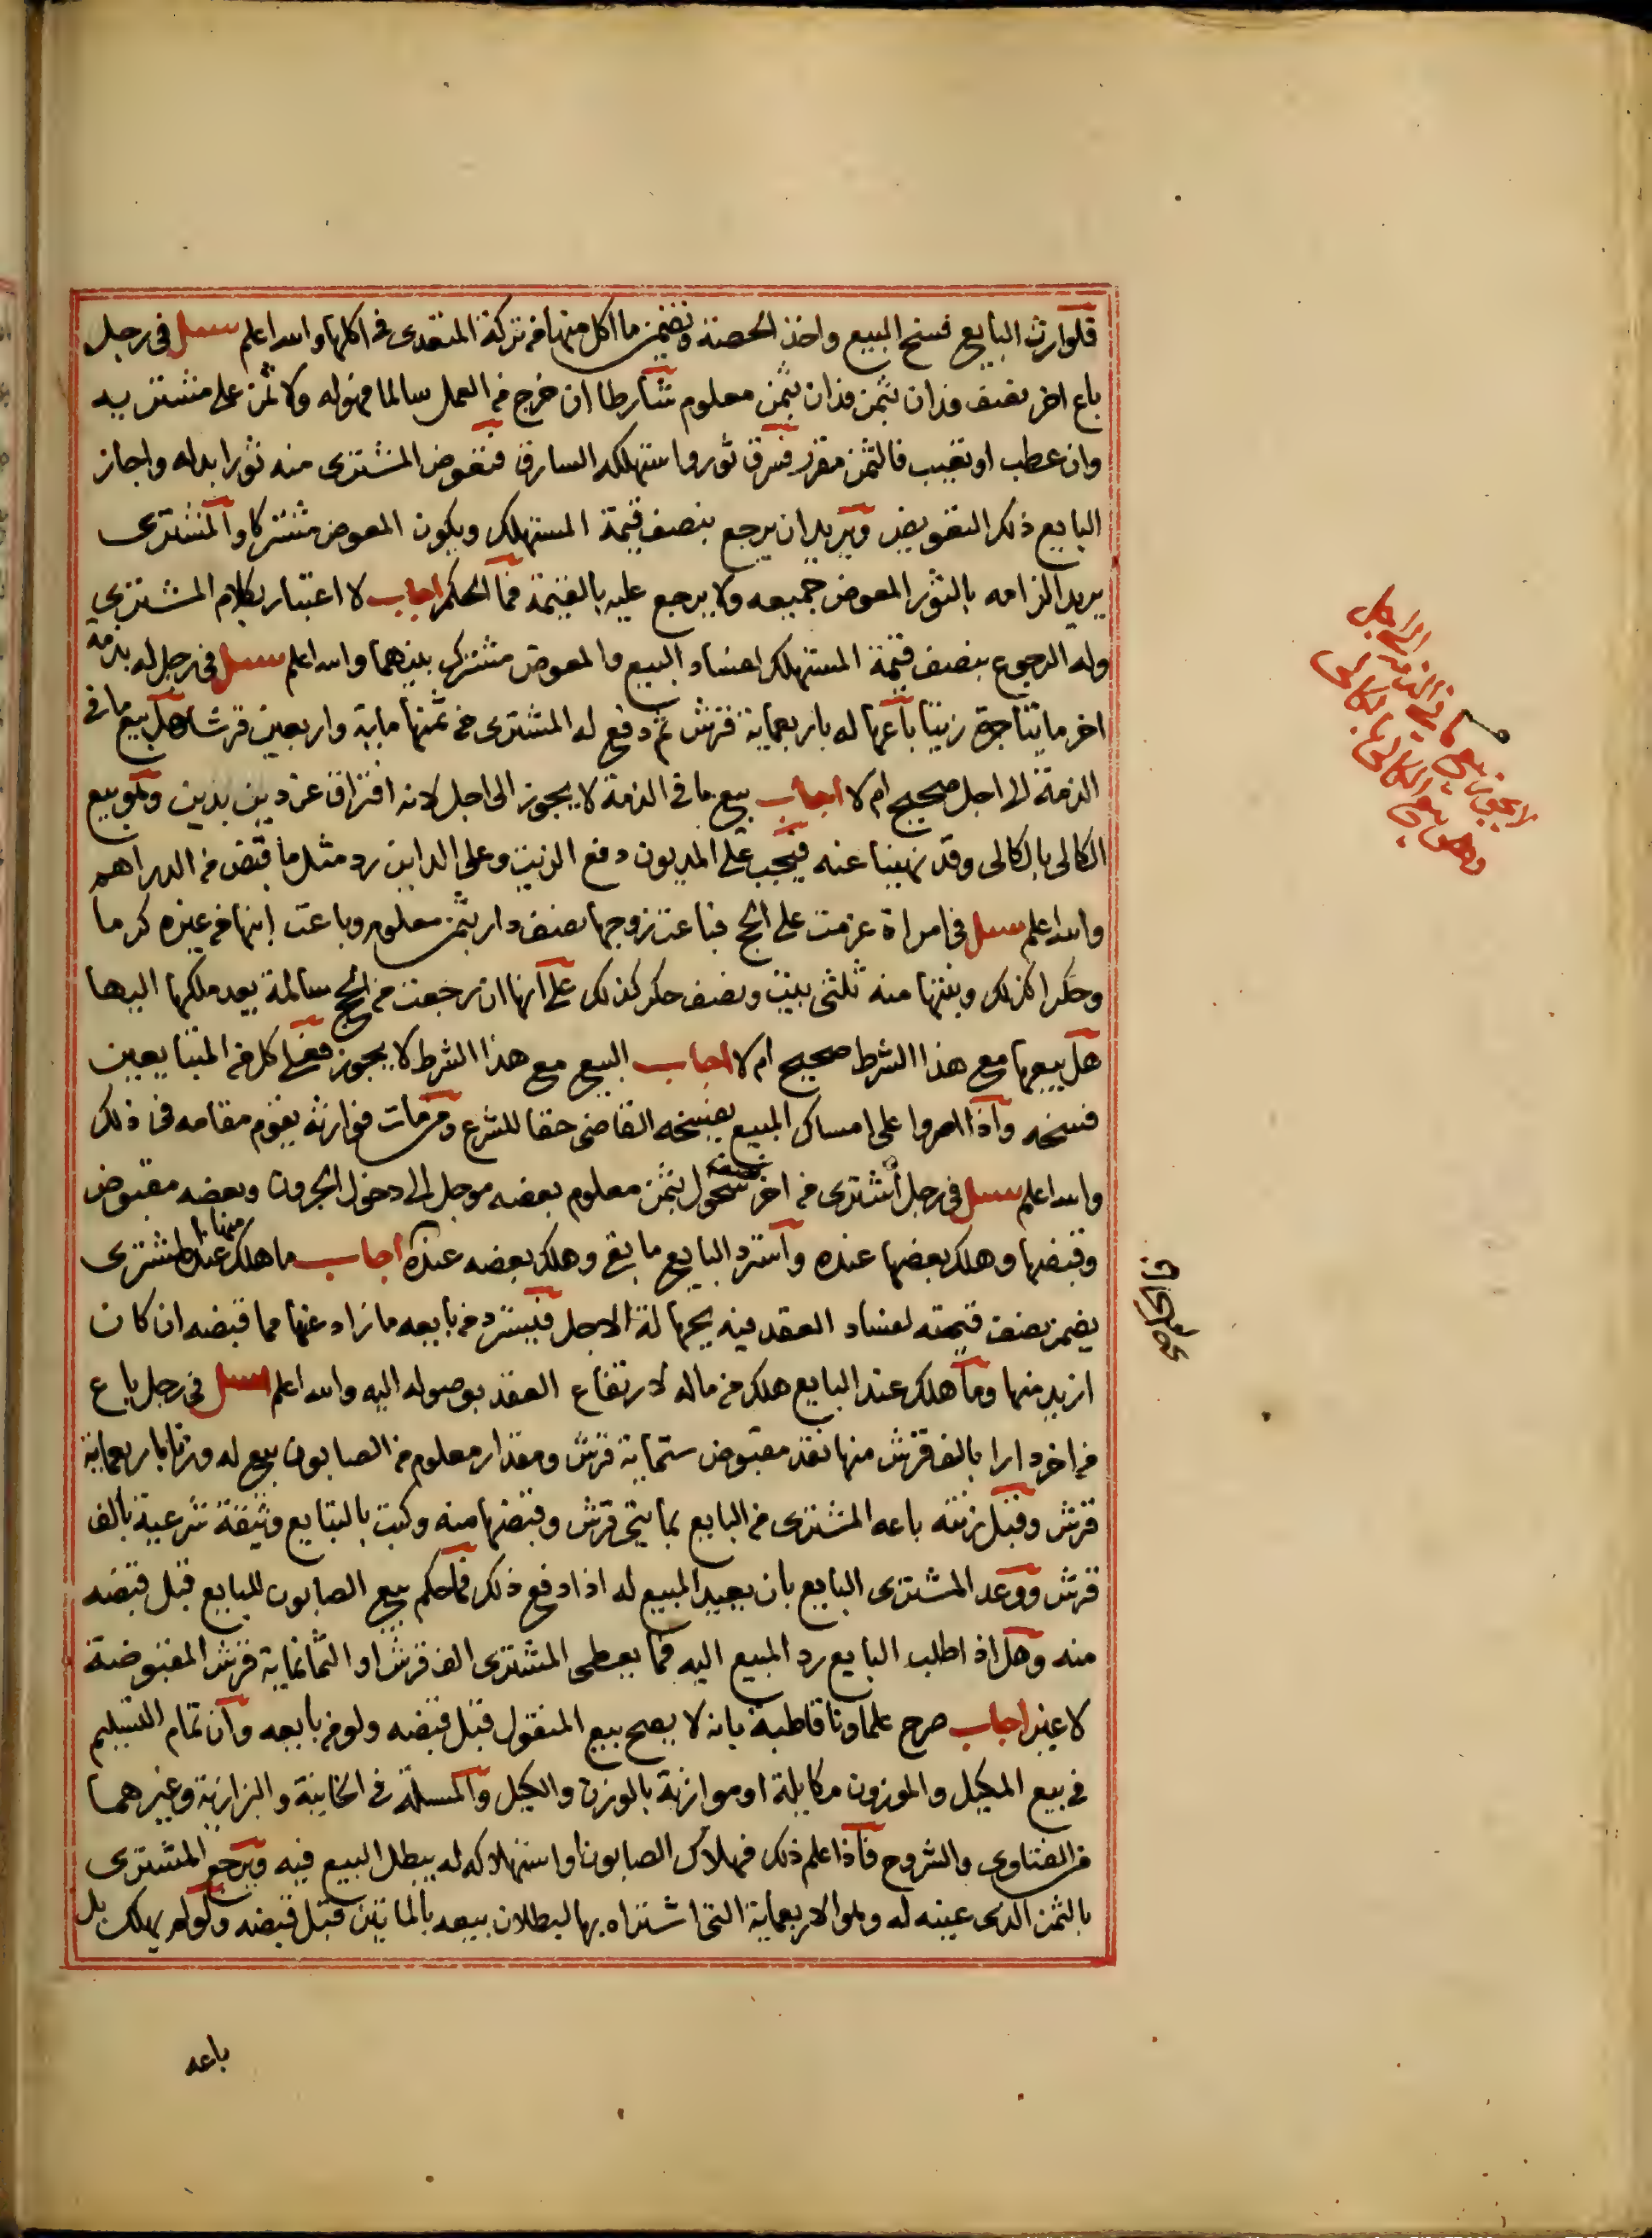 فلوارث البايع فسخ البيع واخذ الحصة وتضمن ما اكل منها من تركة المتعدى فى اكلها والله اعلم سئل فى رجل
باع اخر نصف فدان بثمن فدان بثمن معلوم شارطا ان خرج من العمل سالما فهو له ولا ثمن على مشتريه
وان عطب او تغيب فالثمن مقرر فسرق ثور واستهلكه السارق فتعوض المشترى منه ثورا بداه واجاز
البايع ذلك التعويض ويريد ان يرجع بنصف قيمة المستهلك ويكون المعوض مشتركا والمشترى
يريد الزامه بالثور المعوض جميعه ولا يرجع عليه بالقيمة فما الحكم اجاب لا اعتبار بكلام المشترى
وله الرجوع بنصف قيمة المستهلك لفساد البيع والمعوض مشترك بينهما والله اعلم سئل فى رجل له بذمة
اخر مايتا جرة زيتا باعها له باربعماية قرش ثم دفع له المشترى من ثمنها ماية واربعين قرشا هل بيع ما فى
الذمة الى اجل صحيح ام لا اجاب بيع ما فى الذمة لا يجوز الى اجل لانه افتراق عن دين بدين وهو بيع
الكالى بالكالى وقد نهينا عنه فيجب على المديون دفع الزيت وعلى الداين رد مثل ما قبض من الدراهم
والله اعلم سئل فى امراة عزمت على الحج فباعت زوجها نصف دار بثمن معلوم وباعت ابنها من غيره كرما
وحكرا كذلك وبنتها منه ثلثى بيت ونصف حكر كذلك على انها ان رجعت من الحج سالمة يعد ملكها اليها
هل بيعها مع هذا الشرط صحيح ام لا اجاب البيع مع هذا الشرط لا يجوز فعلى كل من المتبايعين
فسخه واذا اصروا على امساك المبيع يفسخه القاضى حقا للشرع ومن مات فوارثه يقوم مقامه فى ذلك
والله اعلم سئل فى رجل اشترى من اخر نصف نحول بثمن معلوم بعضه موجل الى دخول الجرون وبعضه مقبوض
وقبضها وهلك بعضها عنده واسترد البايع ما بقى وهلك بعضه عنده اجاب ما هلك منها عند المشترى
يضمن نصف قيمته لفساد العقد فيه بجهالة الاجل فيسترد من بايعه ما زاد عنها مما قبضه ان كان
ازيد منها وما هلك عند البايع هلك من ماله لارتفاع العقد بوصوله اليه والله اعلم سئل فى رجل باع
من اخر دارا بالف قرش منها نقد مقبوض ستماية قرش ومقدار معلوم من الصابون بيع له وزنا باربعماية
قرش وقبل زنته باعه المشترى من البايع بمايتى قرش وقبضها منه وكتب بالتبايع وثيقة شرعية بالف
قرش ووعد المشترى البايع بان يعيد المبيع له اذا دفع ذلك فما حكم بيع الصابون للبايع قبل قبضه
منه وهل اذا طلب البايع رد المبيع اليه فما يعطى المشترى الف قرش او الثمانماية قرش المقبوضة
لا غير اجاب صرح علماونا قاطبة بانه لا يصح بيع المنقول قبل قبضه ولو من بايعه وان تمام التسليم
فى بيع المكيل والموزون مكايلة او موازنة بالوزن والكيل والمسئلة فى الخانية والبزازية وغيرهما
من الفتاوى والشروح فاذا علم ذلك فهلاك الصابون او استهلاكه له يبطل البيع فيه ويرجع المشترى
بالثمن الذى عينه له وهو الاربعماية التى اشتراه بها لبطلان بيعه بالمايتين قبل قبضه ولو لم يهلك بل
باعه
لا يجوز بيع ما فى الذمة الى اجل
وهو بيع الكالى بالكالى